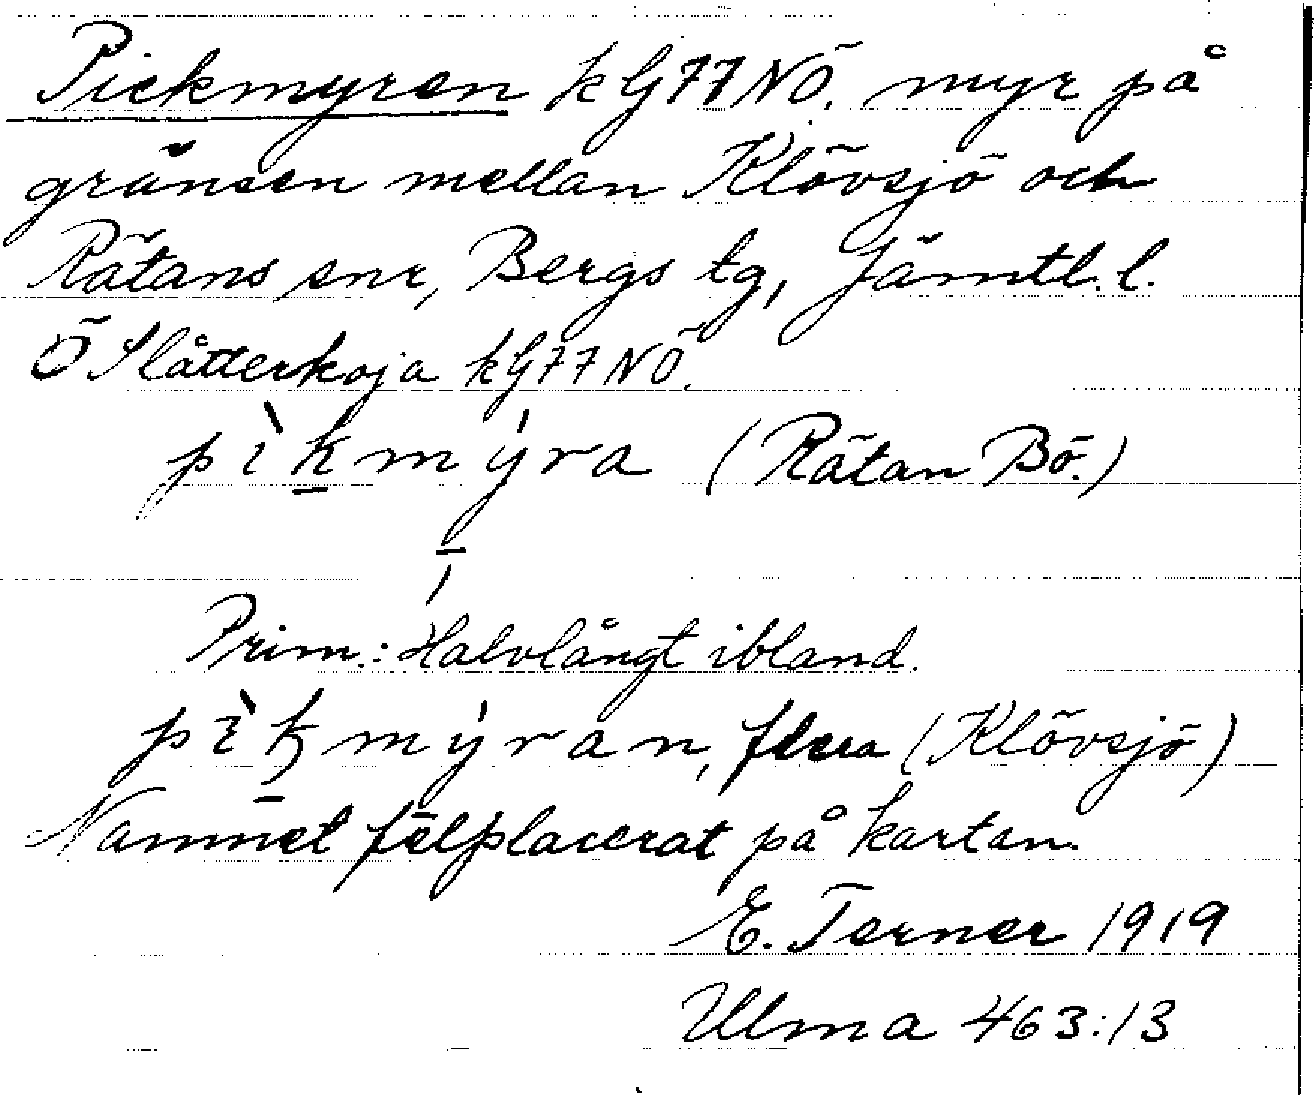 Pickmyren k G77NÖ. myr på
gränsen mellan Klövsjö och
Rätans snr, Bergs tg, Jämtl. l.
Ö Slåtterkoja k G77NÖ.
pìkmy̍ra (Rätan Bö.)
Prim.: Halvlångt ibland.
pìkmy̍ran, flera (Klövsjö)
Namnet felplacerat på kartan.
E. Terner 1919
Ulma 463:13